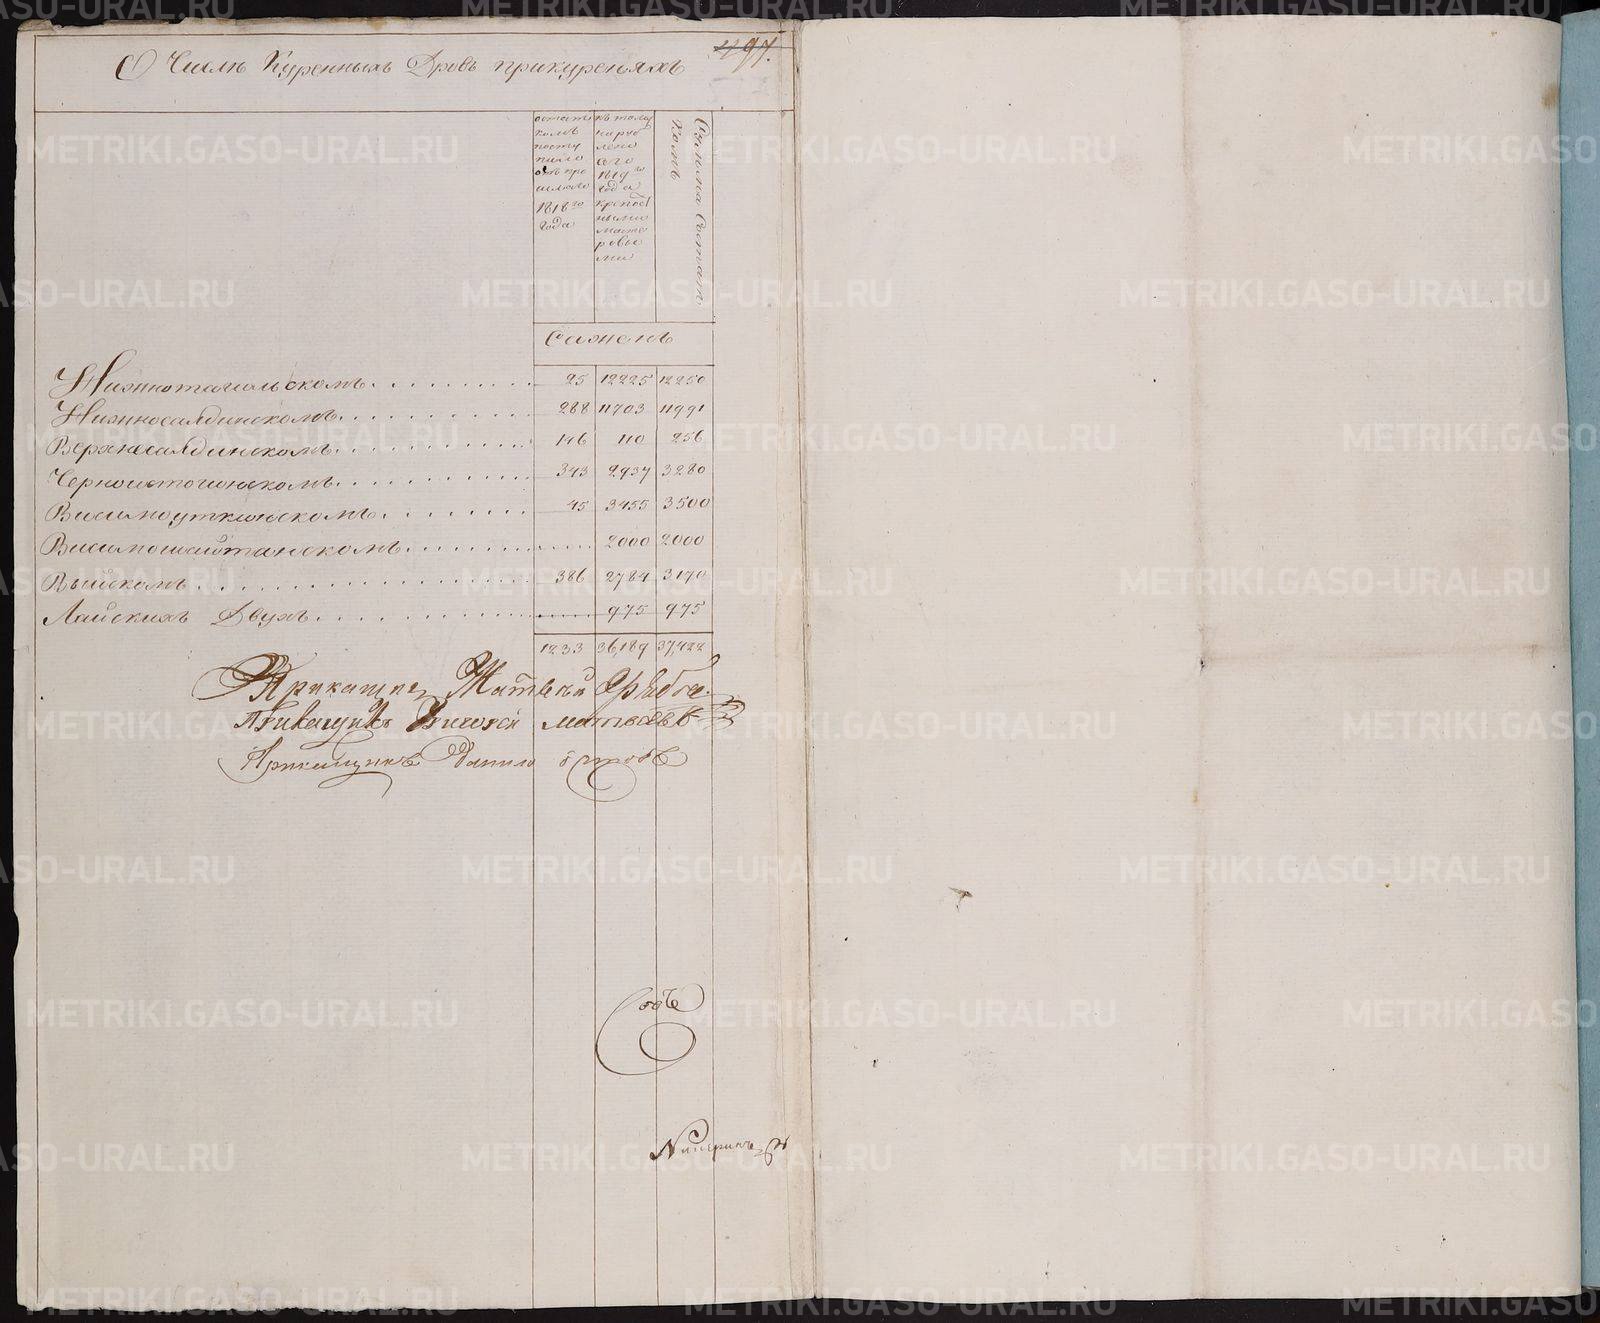 497.
О Числе Куренныхъ Дровъ прикуреняхъ
остат
комъ
посту
пило
отъ про
шлаго
1818го
года
къ тому
наруб
лено
сего
1819го
года
крепос
ными
масте
ровы
ми
Сумма Состат
комъ
Саженъ
Нижнотагильскомъ . . . . . . . . . . 25 12225 12250
Нижносалдинскомъ . . . . . . . . . . 288 11703 11991
Верхнесалдинскомъ . . . . . . . . . . 146 110 256
Черноисточинскомъ . . . . . . . . . . 343 2937 3280
Висимоуткинскомъ . . . . . . . . 45 3455 3500
Висимошайтанскомъ . . . . . . . . . . 2000 2000
Выйскомъ . . . . . . . . . . . . . . . . 386 2784 3170
Лайскихъ Двухъ . . . . . . . . . . . . 975 975
1233 36,189 37,422
Прикащикъ Матвей
Прикащикъ матвеевъ
Прикащикъ Данило
METRIKI.GASO-URAL.RU